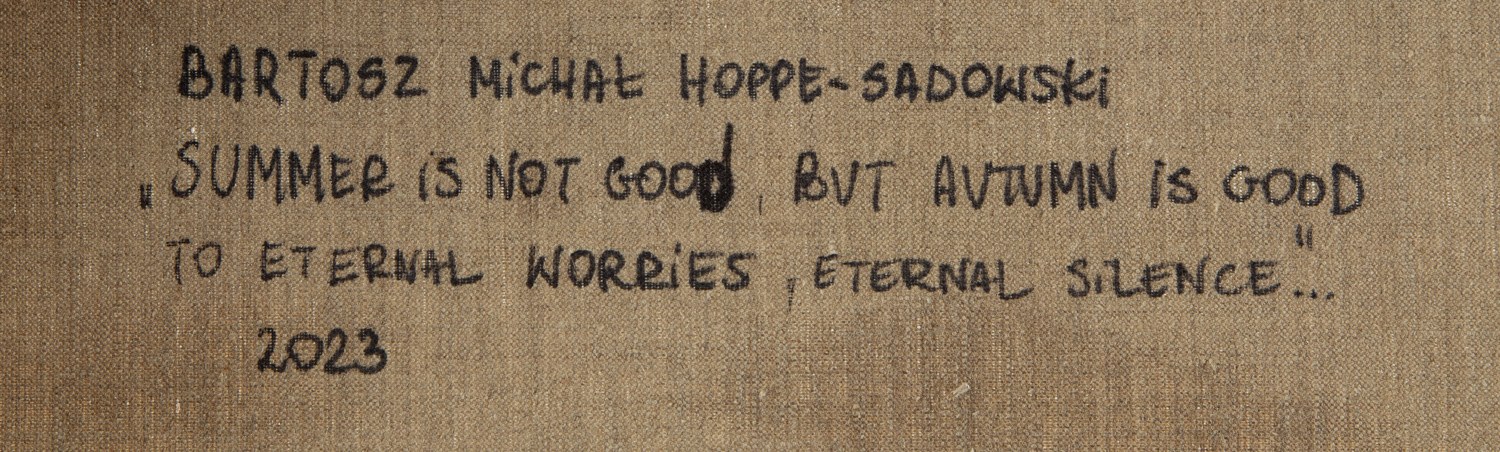 BARTOSZ MiCHAŁ HOPPE-SADOWSKi
„SUMMER iS NOT GOOd, BUT AUTUMN iS GOOD
TO ETERNAL WORRiES, ETERNAL SiLENCE..."
2023